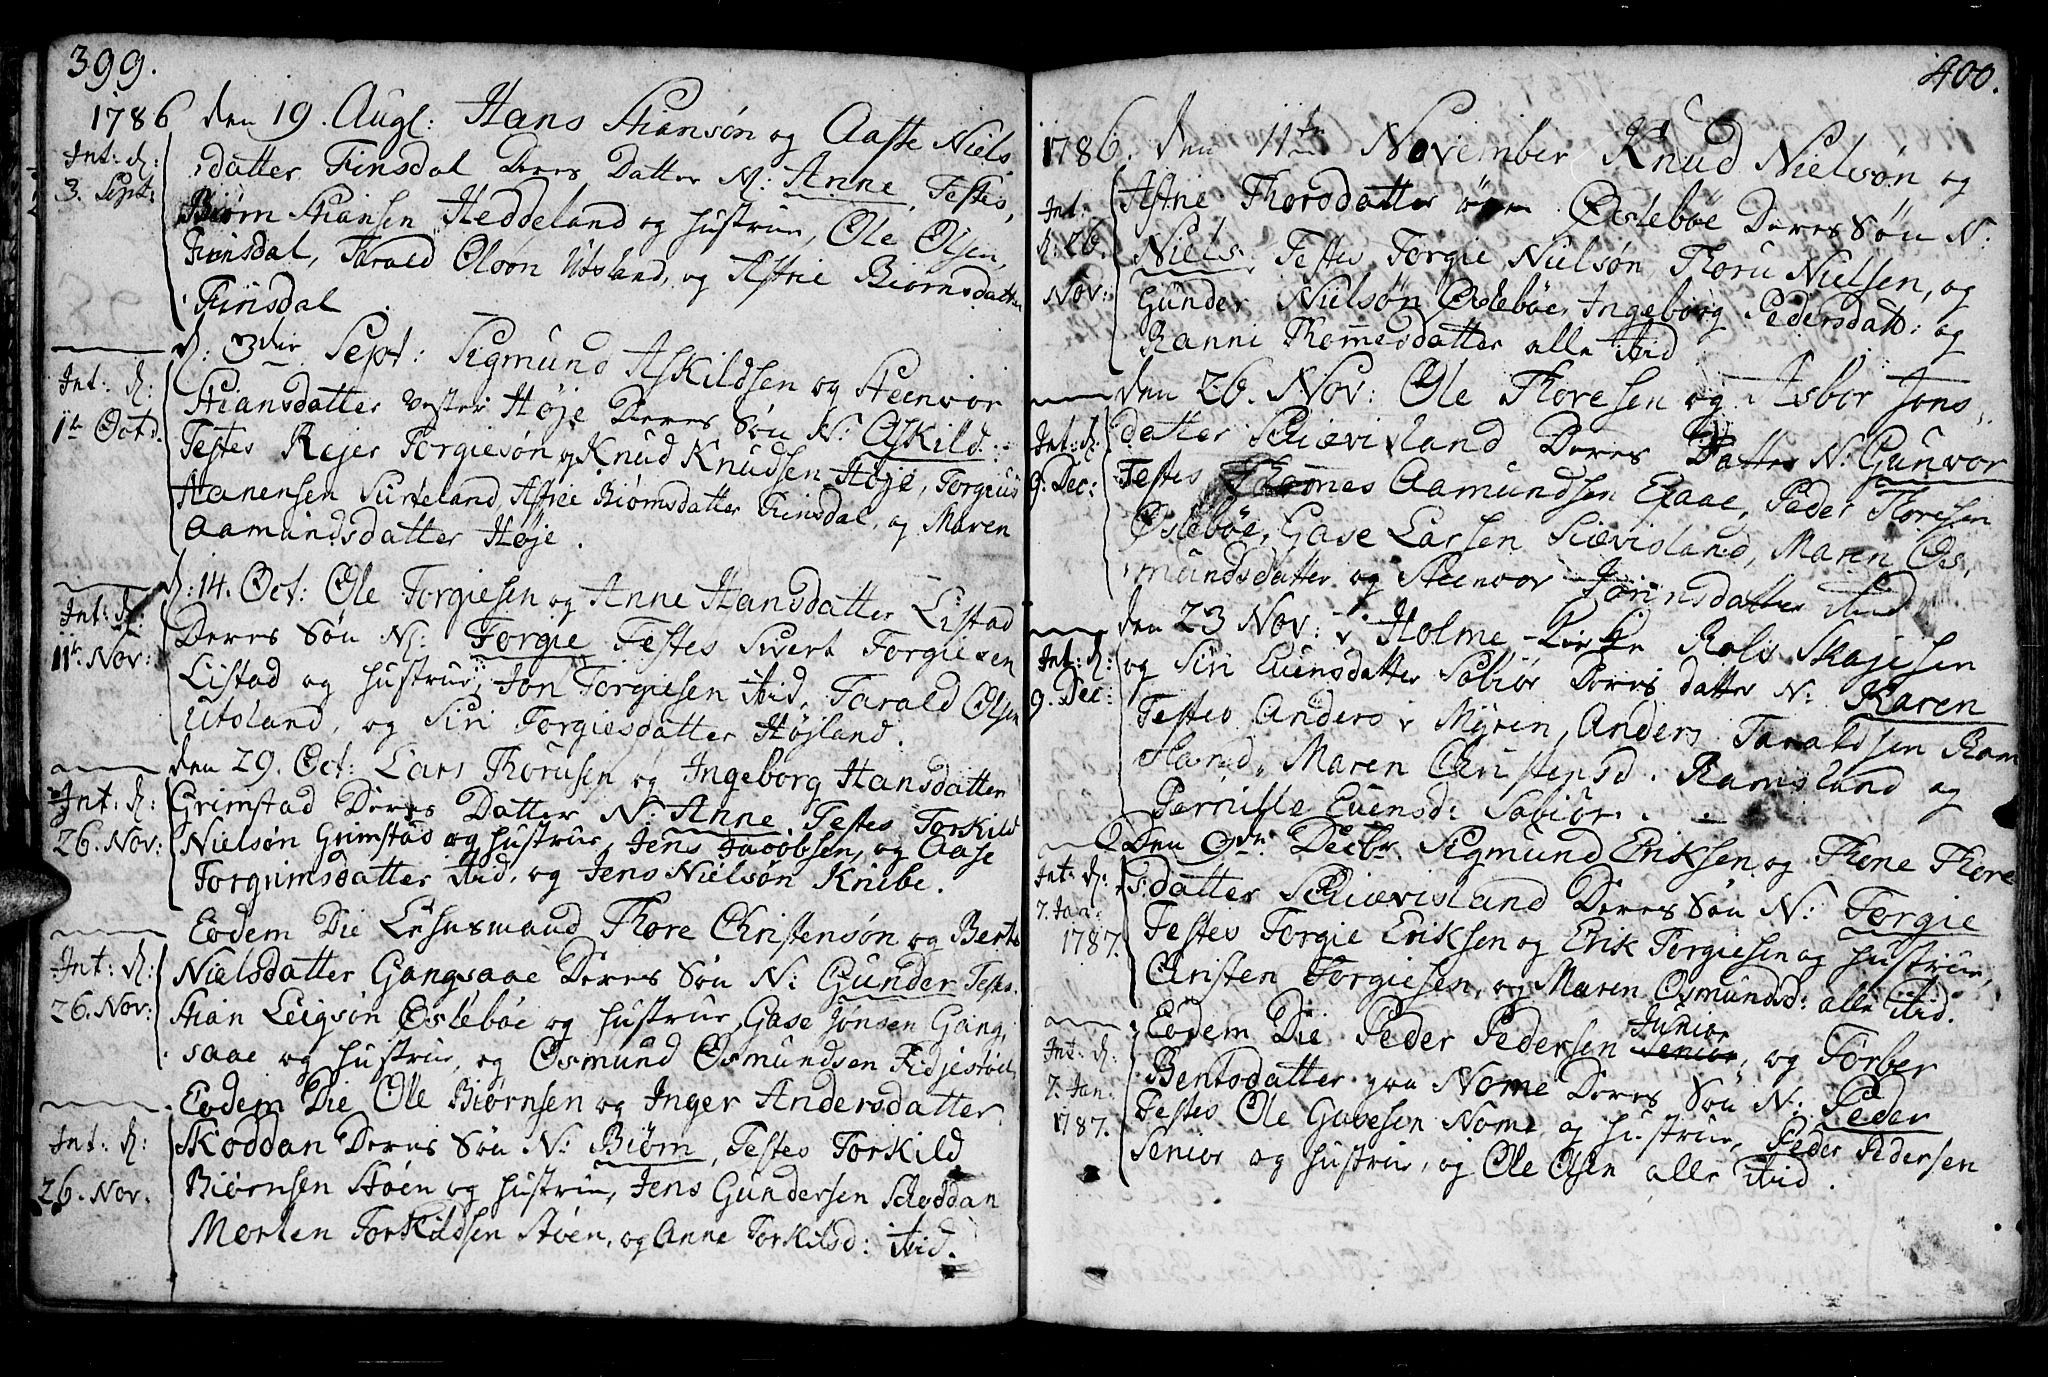 399.
1786 den 19. Augl: Hans Stiansøn og Aaste Niels
Int: K: datter Finsdal Deres Datter N: Anne, Testes,
3. Sept: Biørn Stiansen Heddeland og Hustrue, Ole Olsen,
Finsdal, Tarald Olsøn Utsland, og Astrie Biørnsdatter
Finsdal.
d: 3die Sept: Sigmund Askildsen og Steenvor
Int: K: Stiansdatter Vester Høje Deres Søn N: Askild.
1te Octo. Testes Rejer Torgiesøn og Knud Knudsen Høje, Torgius
Hanensen Surteland, Astrie Biørnsdatter Finsdal, og Maren
Aamundsdatter Høje.
d: 14. Oct: Ole Torgiesen og Anne Hansdatter Listad
Int: K: Deres Søn N: Torgie Testes Sivert Torgiesen
11te Nov: Listad og Hustrue, Jon Torgiesen ibid, Tarald Olsen
Utsland, og Siri Torgiesdatter Højland.
den 29. Oct: Lars Thorusen og Ingeborg Hansdatter
Int: K: Grimstad Deres Datter N: Anne Testes Torkild
26. Nov: Nielsøn Grimstad og Hustrue, Jens Jacobsen, og Aase
Torgrimsdatter ibid, og Jens Nielsøn Kniebe.
Eodem Die Lehnsmand Thore Christensøn og Berte
Int: K: Nielsdatter Gangsaae Deres Søn N: Gunder Testes
26. Nov: Stian Leigsøn Øslebøe og Hustrue, Gase Jonsen Gang,
saae og Hustrue, og Osmund Osmundsen Fidjestøel,
Eodem Die Ole Biørnsen og Inger Andersdatter
Int: K: Skoddan Deres Søn N: Biørn, Testes Torkild
26. Nov. Biørnsen Støen og Hustrue, Jens Gundersen Schoddan
Morten Torkildsen Støen, og Anne Torkilsd: ibid.
400.
1786. den 11te November Knud Nielsøn og
Int: Astrie Thorsdatter Øslebøe Deres Søn N:
K: 26. Niels, Testes Torgie Nielsøn, Thoru Nielsen, og
Nov: Gunder Nielsøn Øslebøe, Ingeborg Pedersdatt: og
Ranni Thomesdatter alle ibid
den 26. Nov: Ole Thoresen og Asbor Jons,
Int: K: datter Schiævisland Deres Datter N: Gunvor
9. Dec: Testes Thomes Aamundsen Eaae, Peder Thoresen
Øslebøe, Gase Larsen Siævisland, Maren Os,
mundsdatter og Steenvor Jorinsdatter ibid
den 23 Nov: i Holme Kirke Rols Skajesen
Int: K: og Siri Evensdatter Sobiør Deres datter N: Karen
9. Dec: Testes Anders i Myren, Anders Taraldsen Ram
sland, Maren Christensd. Ramsland og
Pernille Evensd: Sobiør.
Den 9de Decbr Sigmund Eriksen og Thone Thore
Int: K: sdatter Schiævisland Deres Søn N: Torgie
7. Jan: Testes Torgie Eriksen og Erik Torgiesen og Hustrue,
1787. Christen Torgiesen, og Maren Osmundsd: alle ibid.
Eodem Die Peder Pedersen Senior Junior, og Torber
Int: K: Bentsdatter paa Nome Deres Søn N: Peder
7. Jan: Testes Ole Gavesen Nome og Hustrue, Peder Pedersen
1787. Senior og Hustrue, og Ole Olsen alle ibid.